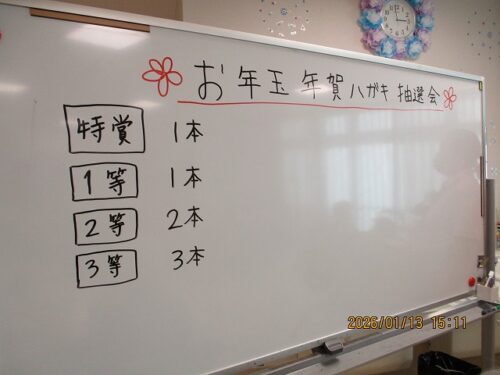 お年玉 年賀ハガキ 抽選会
特賞 1本
1等 1本
2等 2本
3等 3本
2026/01/13 15:11